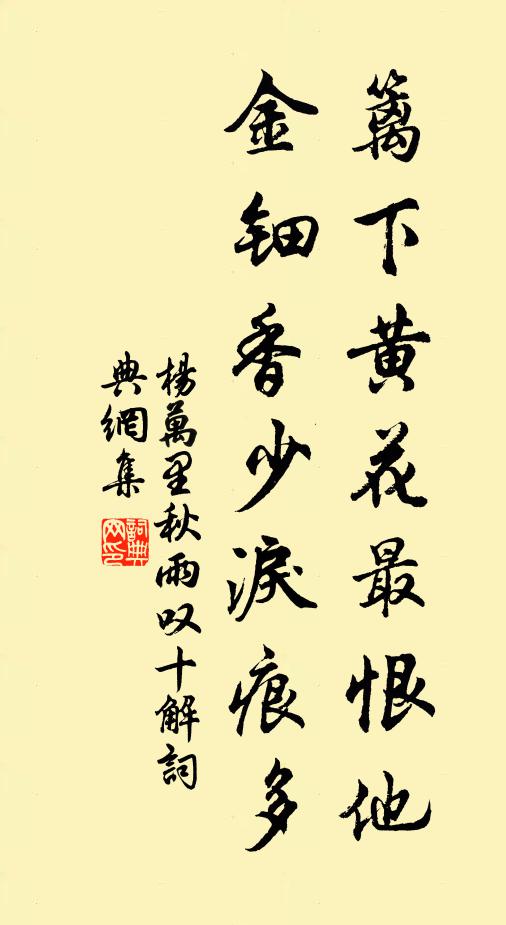 籬下黄花最恨他
金鈿香少淚痕多
楊萬里秋雨叹十解詞
典網集
詞典
网印